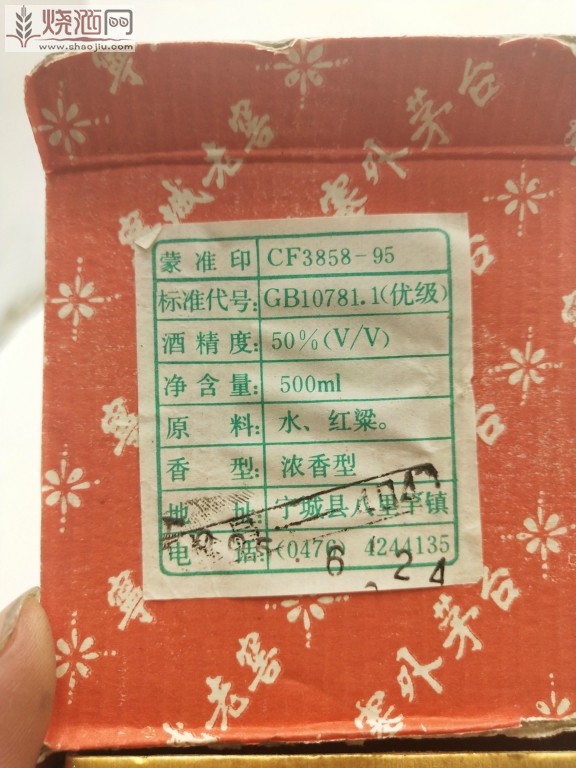 烧酒网
www.shaojiu.com
宁城老窖 塞外茅台
蒙准印 CF3858-95
标准代号: GB10781.1(优级)
酒精度: 50%(V/V)
净含量: 500ml
原料: 水、红粱。
香型: 浓香型
地址: 宁城县八里罕镇
电话: (0476) 4244135
6 24
宁城老窖 塞外茅台